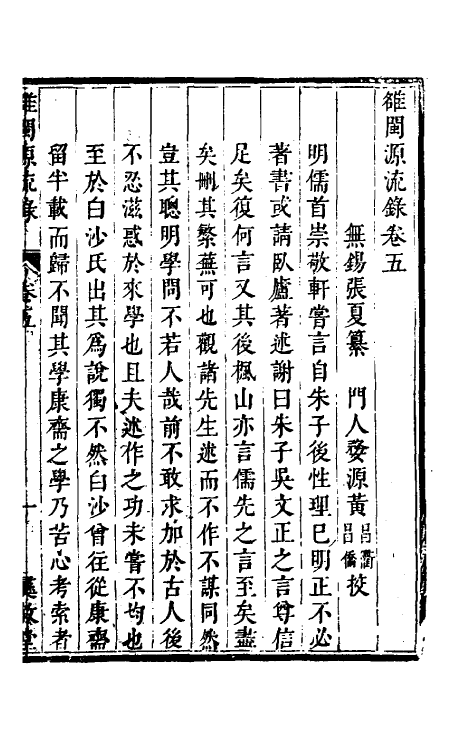 雒閩源流錄卷五
無錫張夏纂　門人婺源黃昌衢昌僑挍
明儒首崇敬軒嘗言自朱子後性理已明正不必
著書或請臥廬著述謝曰朱子吳文正之言尊信
足矣復何言又其後楓山亦言儒先之言至矣盡
矣刪其繁蕪可也觀諸先生述而不作不謀同然
豈其聰明學問不若人哉前不敢求加於古人後
不忍滋惑於來學也且夫述作之功未嘗不均也
至於白沙氏出其為說獨不然白沙曾往從康齋
留半載而歸不聞其學康齋之學乃苦心考索者
雒閩源流錄
卷五
一